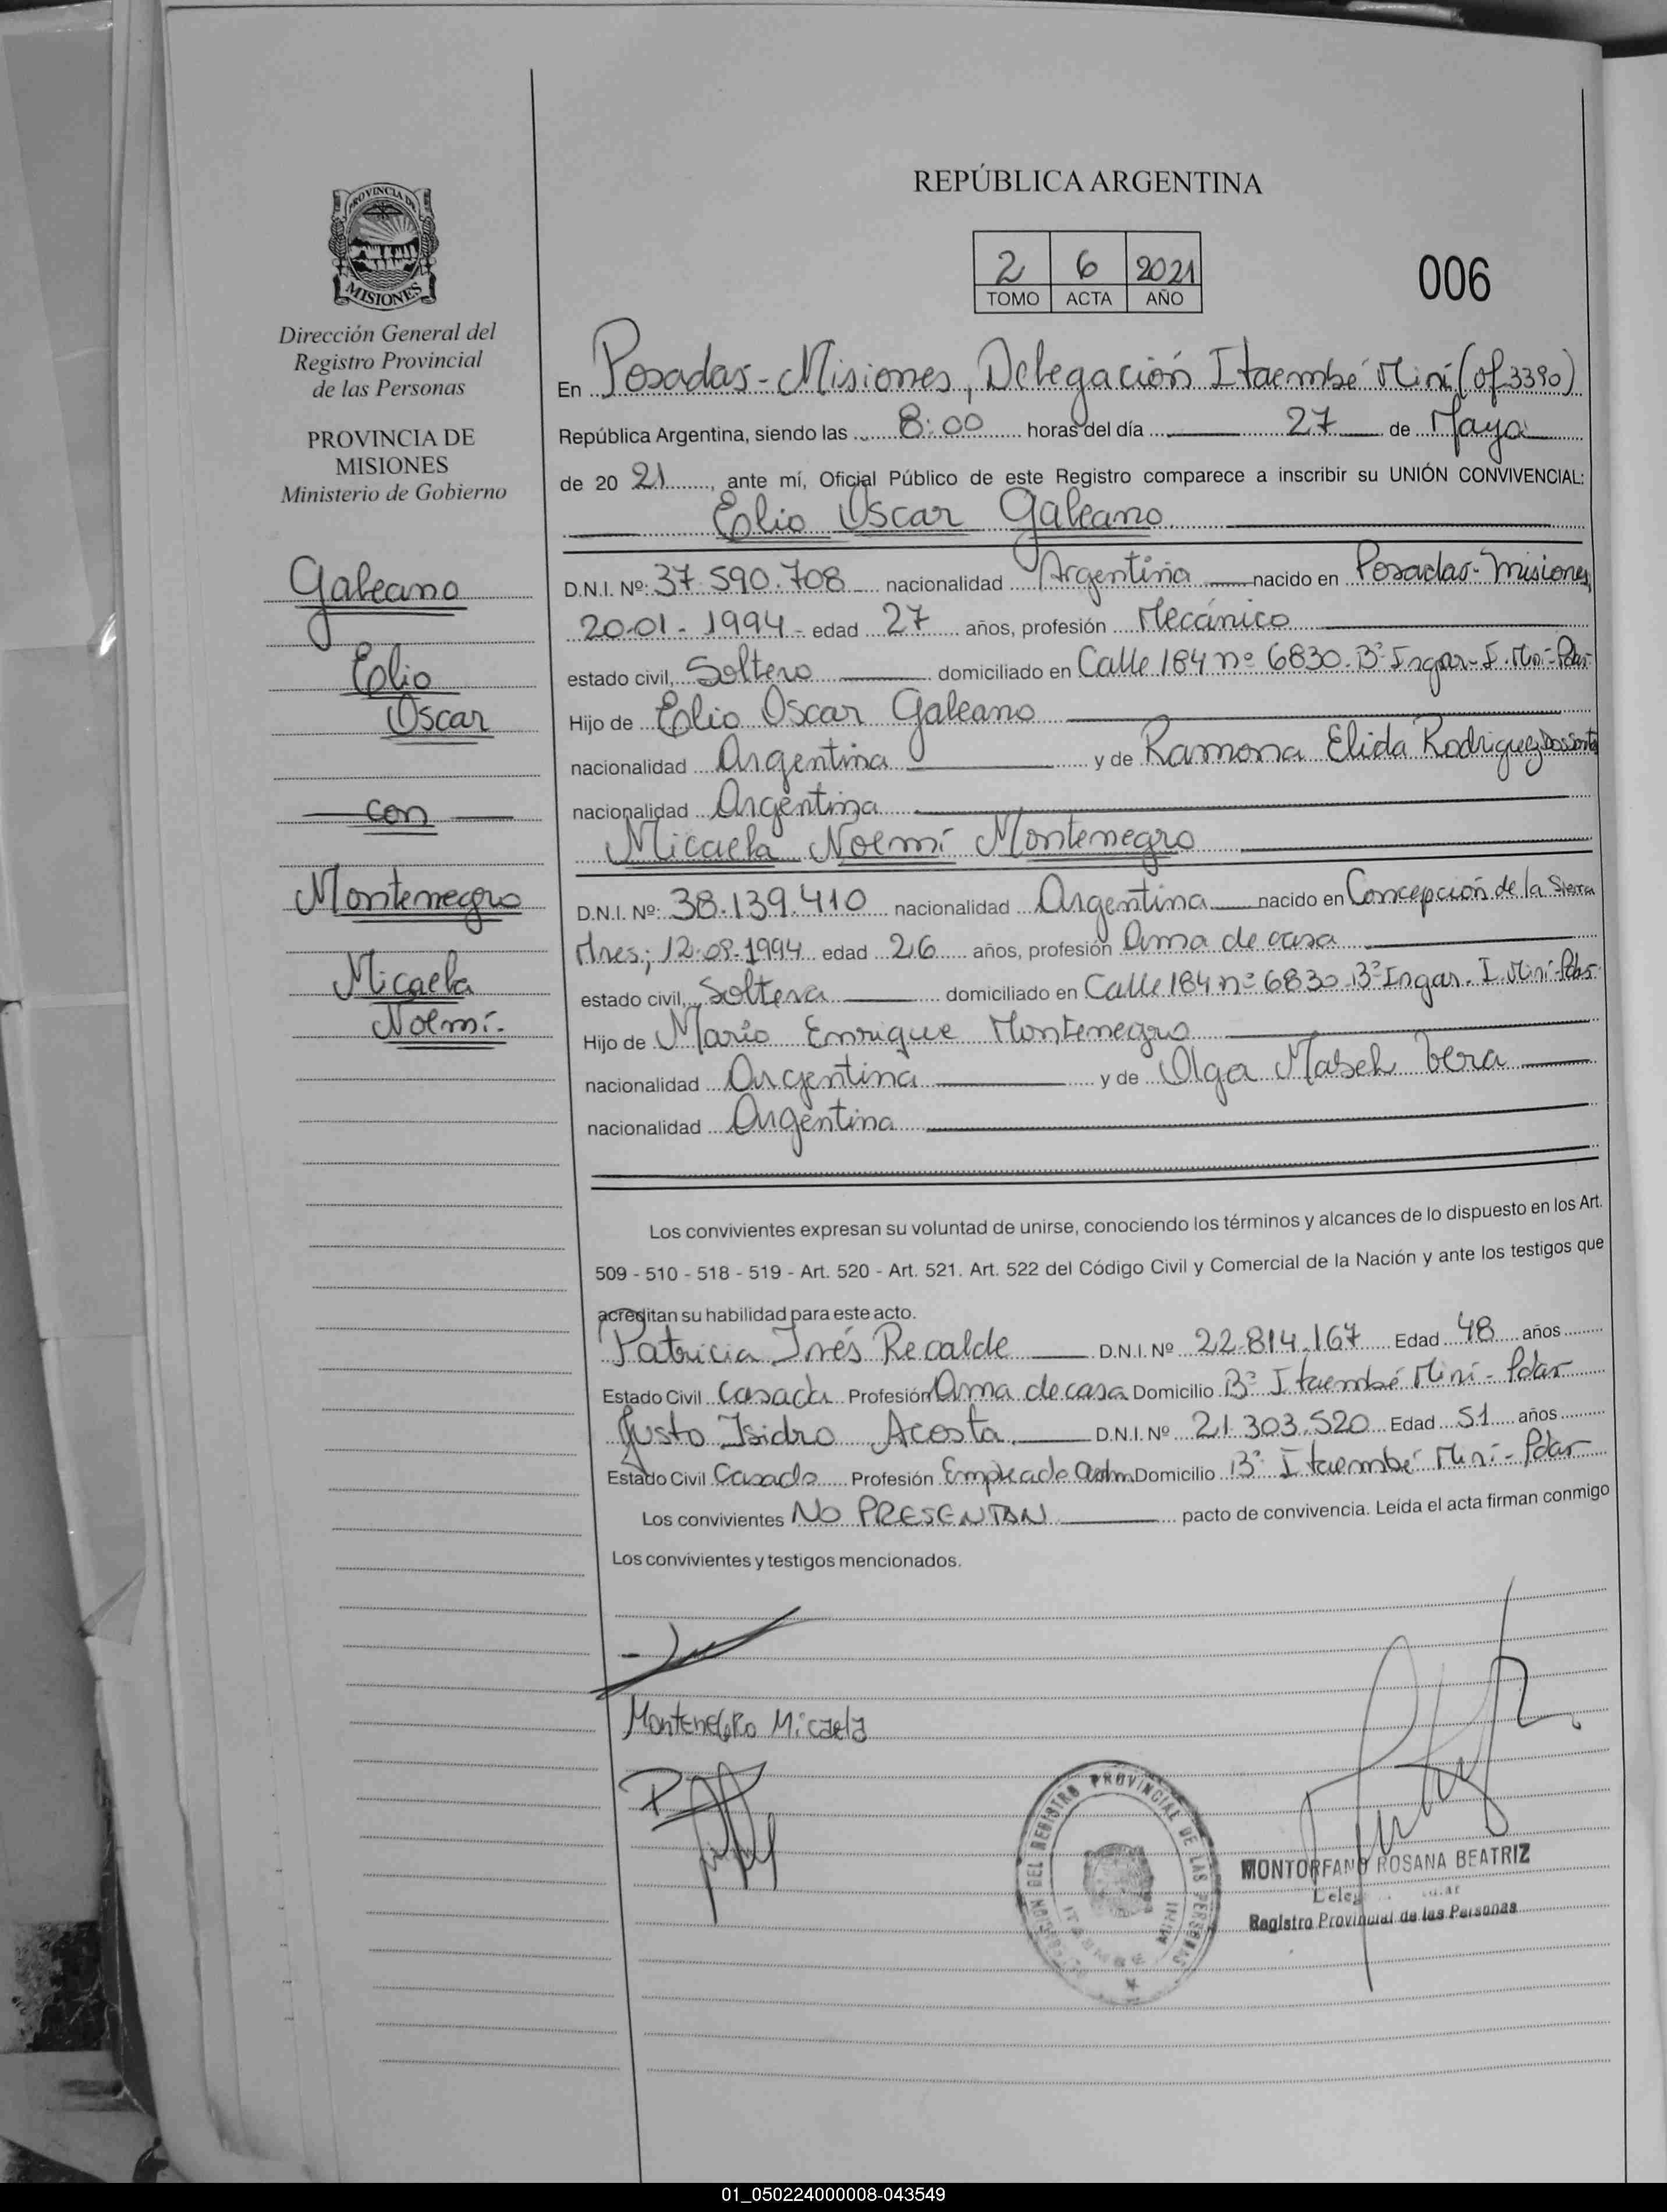 REPÚBLICA ARGENTINA
2 6 2021
TOMO ACTA AÑO
006
PROVINCIA DE
MISIONES
Dirección General del
Registro Provincial
de las Personas
PROVINCIA DE
MISIONES
Ministerio de Gobierno
Galeano
Eolio
Oscar
con
Montenegro
Micaela
Noemí.
En Posadas - Misiones, Delegación Itaembé Miní (of 3390)
República Argentina, siendo las 8:00 horas del día 27 de Mayo
de 20 21, ante mí, Oficial Público de este Registro comparece a inscribir su UNIÓN CONVIVENCIAL:
Eolio Oscar Galeano
D.N.I. Nº: 37.590.708 nacionalidad Argentina nacido en Posadas - Misiones,
20-01-1994- edad 27 años, profesión Mecánico
estado civil, Soltero domiciliado en Calle 184 nº 6830. Bº Ingar - I. Miní - Pdas-
Hijo de Eolio Oscar Galeano
nacionalidad Argentina y de Ramona Elida Rodriguez Dos Santos
nacionalidad Argentina
Micaela Noemí Montenegro
D.N.I. Nº: 38.139.410 nacionalidad Argentina nacido en Concepción de la Sierra
Mnes; 12-08-1994 edad 26 años, profesión Ama de casa
estado civil, Soltera domiciliado en Calle 184 nº 6830 Bº Ingar. I. Miní - Pdas-
Hijo de Mario Enrique Montenegro
nacionalidad Argentina y de Olga Mabel Vera
nacionalidad Argentina
Los convivientes expresan su voluntad de unirse, conociendo los términos y alcances de lo dispuesto en los Art.
509 - 510 - 518 - 519 - Art. 520 - Art. 521. Art. 522 del Código Civil y Comercial de la Nación y ante los testigos que
acreditan su habilidad para este acto.
Patricia Inés Recalde D.N.I. Nº 22.814.167 Edad 48 años
Estado Civil Casada Profesión Ama de casa Domicilio Bº Itaembé Miní - Pdas
Justo Isidro Acosta D.N.I. Nº 21.303.520 Edad 51 años
Estado Civil Casado Profesión Empleado Adm. Domicilio Bº Itaembé Miní - Pdas
Los convivientes NO PRESENTAN pacto de convivencia. Leída el acta firman conmigo
Los convivientes y testigos mencionados.
Montenegro Micaela
DEL REGISTRO PROVINCIAL DE LAS PERSONAS
MONTORFANO ROSANA BEATRIZ
Registro Provincial de las Personas
01_050224000008-043549